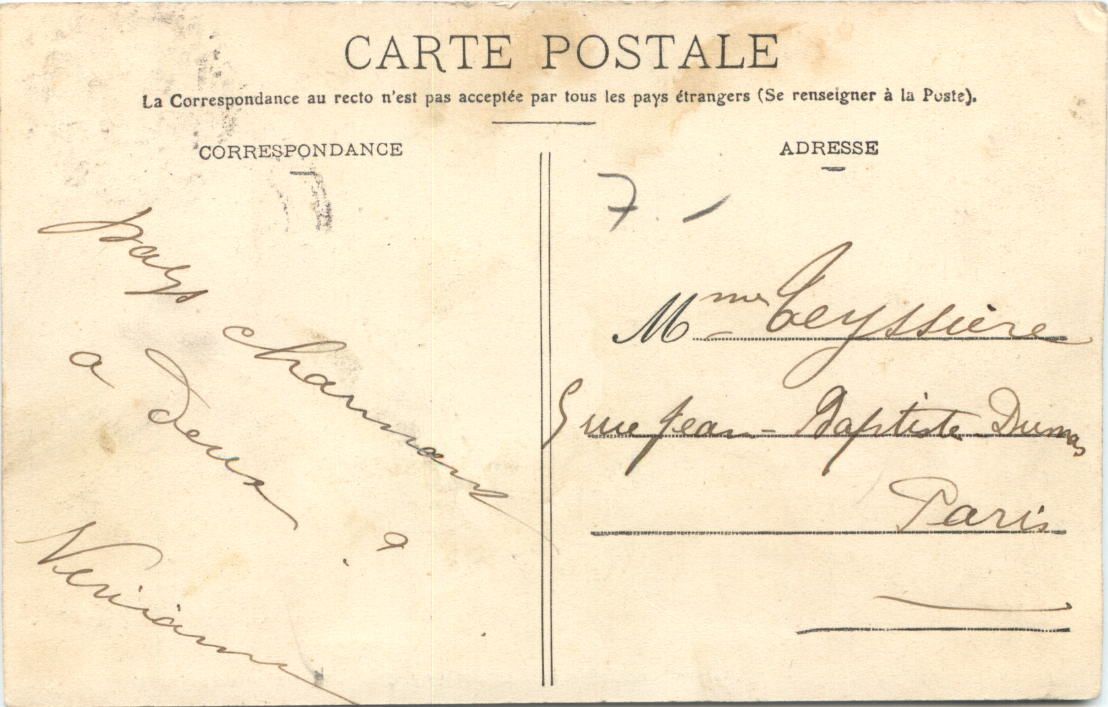 CARTE POSTALE
La Correspondance au recto n'est pas acceptée par tous les pays étrangers (Se renseigner à la Poste).
CORRESPONDANCE
pays charmant
a deux
a
ADRESSE
7. -
Mme Teyssière
5 rue Jean-Baptiste-Dumas
Paris